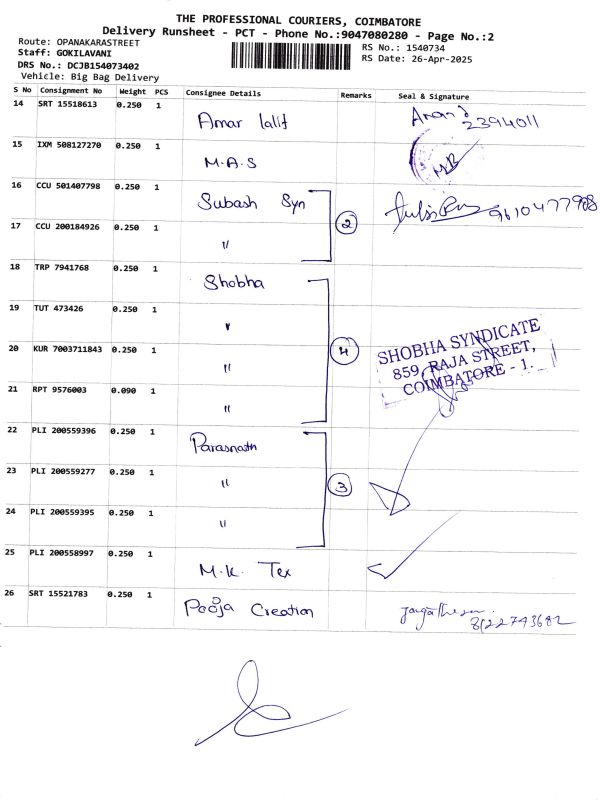 THE PROFESSIONAL COURIERS, COIMBATORE
Delivery Runsheet - PCT - Phone No.:9047080280 - Page No.:2
Route: OPANAKARASTREET
Staff: GOKILAVANI
DRS No.: DCJB154073402
Vehicle: Big Bag Delivery
RS No.: 1540734
RS Date: 26-Apr-2025
S No Consignment No Weight PCS Consignee Details Remarks Seal & Signature
14 SRT 15518613 0.250 1 Amar lalit Anand 2394011
15 IXM 508127270 0.250 1 M.A.S
16 CCU 501407798 0.250 1 Subash Syn 9610477908
17 CCU 200184926 0.250 1 〃 2
18 TRP 7941768 0.250 1 Shobha
19 TUT 473426 0.250 1 〃
20 KUR 7003711843 0.250 1 〃 4
SHOBHA SYNDICATE
859, RAJA STREET,
COIMBATORE - 1.
21 RPT 9576003 0.090 1 〃
22 PLI 200559396 0.250 1 Parasnath
23 PLI 200559277 0.250 1 〃 3
24 PLI 200559395 0.250 1 〃
25 PLI 200558997 0.250 1 M.K. Tex
26 SRT 15521783 0.250 1 Pooja Creation 8122743682